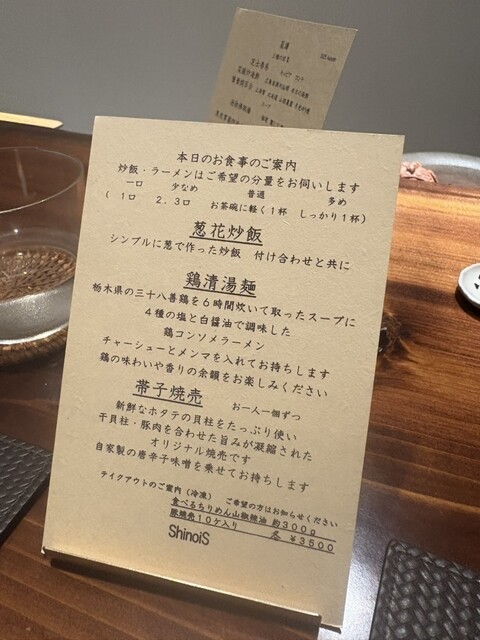 本日のお食事のご案内
炒飯・ラーメンはご希望の分量をお伺いします
一口 少なめ 普通 多め
( 1口 2，3口 お茶碗に軽く1杯 しっかり1杯)
葱花炒飯
シンプルに葱で作った炒飯 付け合わせと共に
鶏清湯麺
栃木県の三十八善鶏を6時間炊いて取ったスープに
4種の塩と白醤油で調味した
鶏コンソメラーメン
チャーシューとメンマを入れてお持ちします
鶏の味わいや香りの余韻をお楽しみください
帯子焼売 お一人一個ずつ
新鮮なホタテの貝柱をたっぷり使い
干貝柱・豚肉を合わせた旨みが凝縮された
オリジナル焼売です
自家製の唐辛子味噌を乗せてお持ちします
テイクアウトのご案内（冷凍） ご希望の方はお知らせください
食べるちりめん山椒辣油 約300g
豚焼売10ケ入り 各 ¥3500
ShinoiS